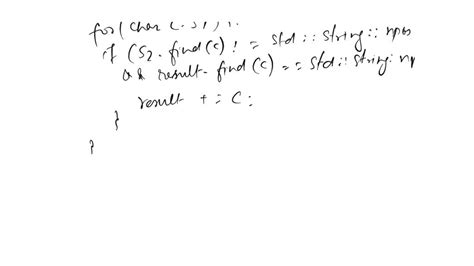 for( char c : s1) {
if (S2.find(c) != std::string::npos
&& result.find(c) == std::string::np
result += c;
}
}